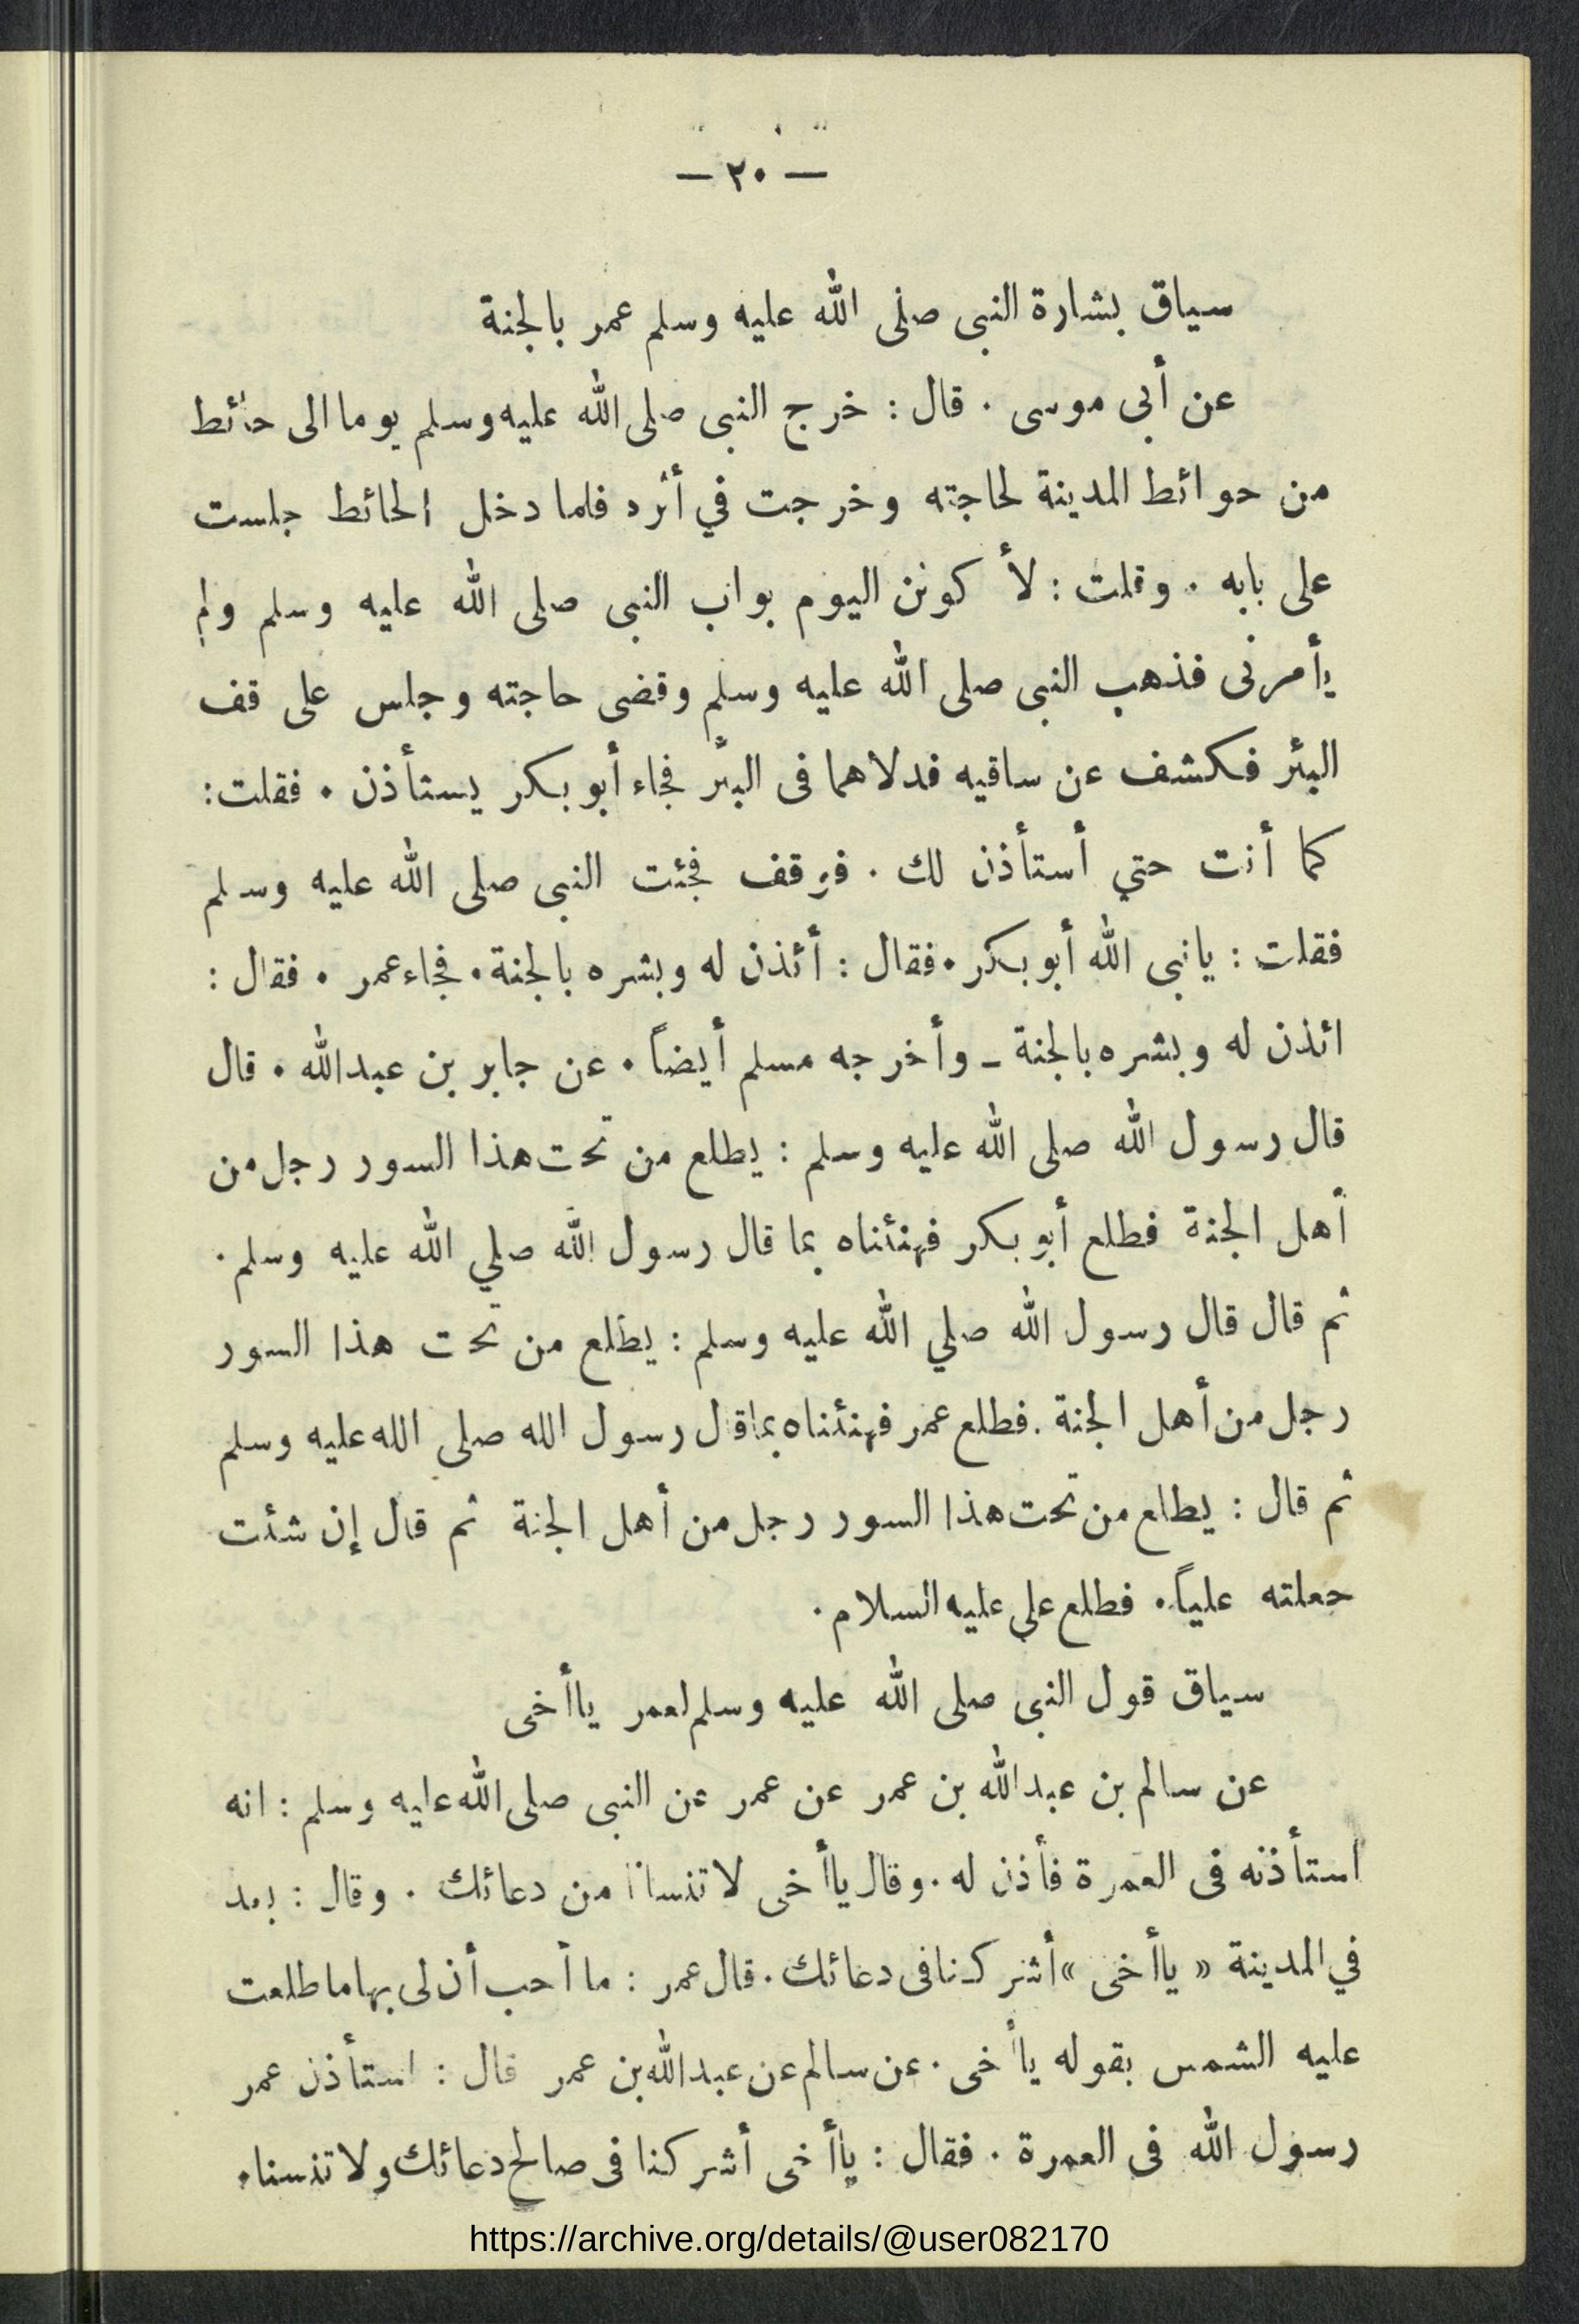 — ٢٠ —
سياق بشارة النبى صلى الله عليه وسلم عمر بالجنة
عن أبى موسى . قال : خرج النبى صلى الله عليه وسلم يوما الى حائط
من حوائط المدينة لحاجته وخرجت في أثره فلما دخل الحائط جلست
على بابه . وقلت : لأ كونن اليوم بواب النبى صلى الله عليه وسلم ولم
يأمرنى فذهب النبى صلى الله عليه وسلم وقضى حاجته وجلس على قف
البئر فكشف عن ساقيه فدلاهما فى البئر فجاء أبو بكر يستأذن . فقلت :
كما أنت حتي أستأذن لك . فوقف فجئت النبى صلى الله عليه وسلم
فقلت : يانبى الله أبو بكر . فقال : أئذن له وبشره بالجنة . فجاء عمر . فقال :
ائذن له وبشره بالجنة ـ وأخرجه مسلم أيضاً . عن جابر بن عبدالله . قال
قال رسول الله صلى الله عليه وسلم : يطلع من تحت هذا السور رجل من
أهل الجنة فطلع أبو بكر فهنئناه بما قال رسول الله صلي الله عليه وسلم .
ثم قال قال رسول الله صلي الله عليه وسلم : يطلع من تحت هذا السور
رجل من أهل الجنة . فطلع عمر فهنئناه بما قال رسول الله صلى الله عليه وسلم
ثم قال : يطلع من تحت هذا السور رجل من أهل الجنة ثم قال إن شئت
جعلته علياً . فطلع على عليه السلام .
سياق قول النبى صلى الله عليه وسلم لعمر ياأخى
عن سالم بن عبدالله بن عمر عن عمر عن النبى صلى الله عليه وسلم : انه
استأذنه فى العمرة فأذن له . وقال ياأخى لا تنسانا من دعائك . وقال : بعد
في المدينة « ياأخى » أشركنا فى دعائك . قال عمر : ما أحب أن لى بها ما طلعت
عليه الشمس بقوله ياأخى . عن سالم عن عبدالله بن عمر قال : استأذن عمر
رسول الله فى العمرة . فقال : ياأخى أشركنا فى صالح دعائك ولا تنسنا .
https://archive.org/details/@user082170